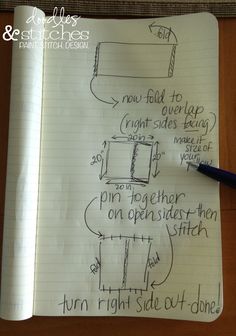 doodles
& stitches
PAINT. STITCH. DESIGN.
fold
now fold to
overlap
(right sides facing)
20 in
make it
size of
your
20"
20"
20 in
pin together
on open sides + then
stitch
fold
fold
turn right side out-done!